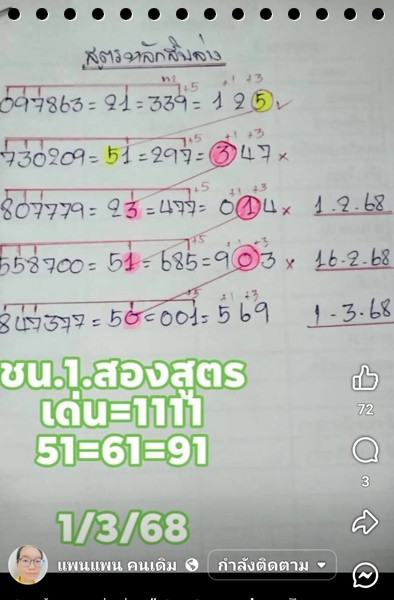 สูตรหลักสิบล่าง
หาร +5 +1 +3
097863 = 21 = 339 = 1 2 5 ✓
+5 +1 +3
730209 = 51 = 297 = 347 ×
+5 +1 +3
807779 = 23 = 477 = 014 × 1-2-68
+5 +1 +3
558700 = 51 = 685 = 903 × 16-2-68
+5 +1 +3
847377 = 50 = 001 = 569 1-3-68
ชน.1.สองสูตร
เด่น=1111
51=61=91
1/3/68
72
3
แพนแพน คนเดิม กำลังติดตาม